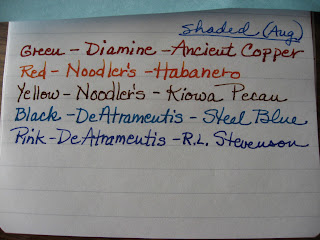 Shaded (Aug)
Green - Diamine - Ancient Copper
Red - Noodler's - Habanero
Yellow - Noodler's - Kiowa Pecan
Black - DeAtramentis - Steel Blue
Pink - DeAtramentis - R.L. Stevenson